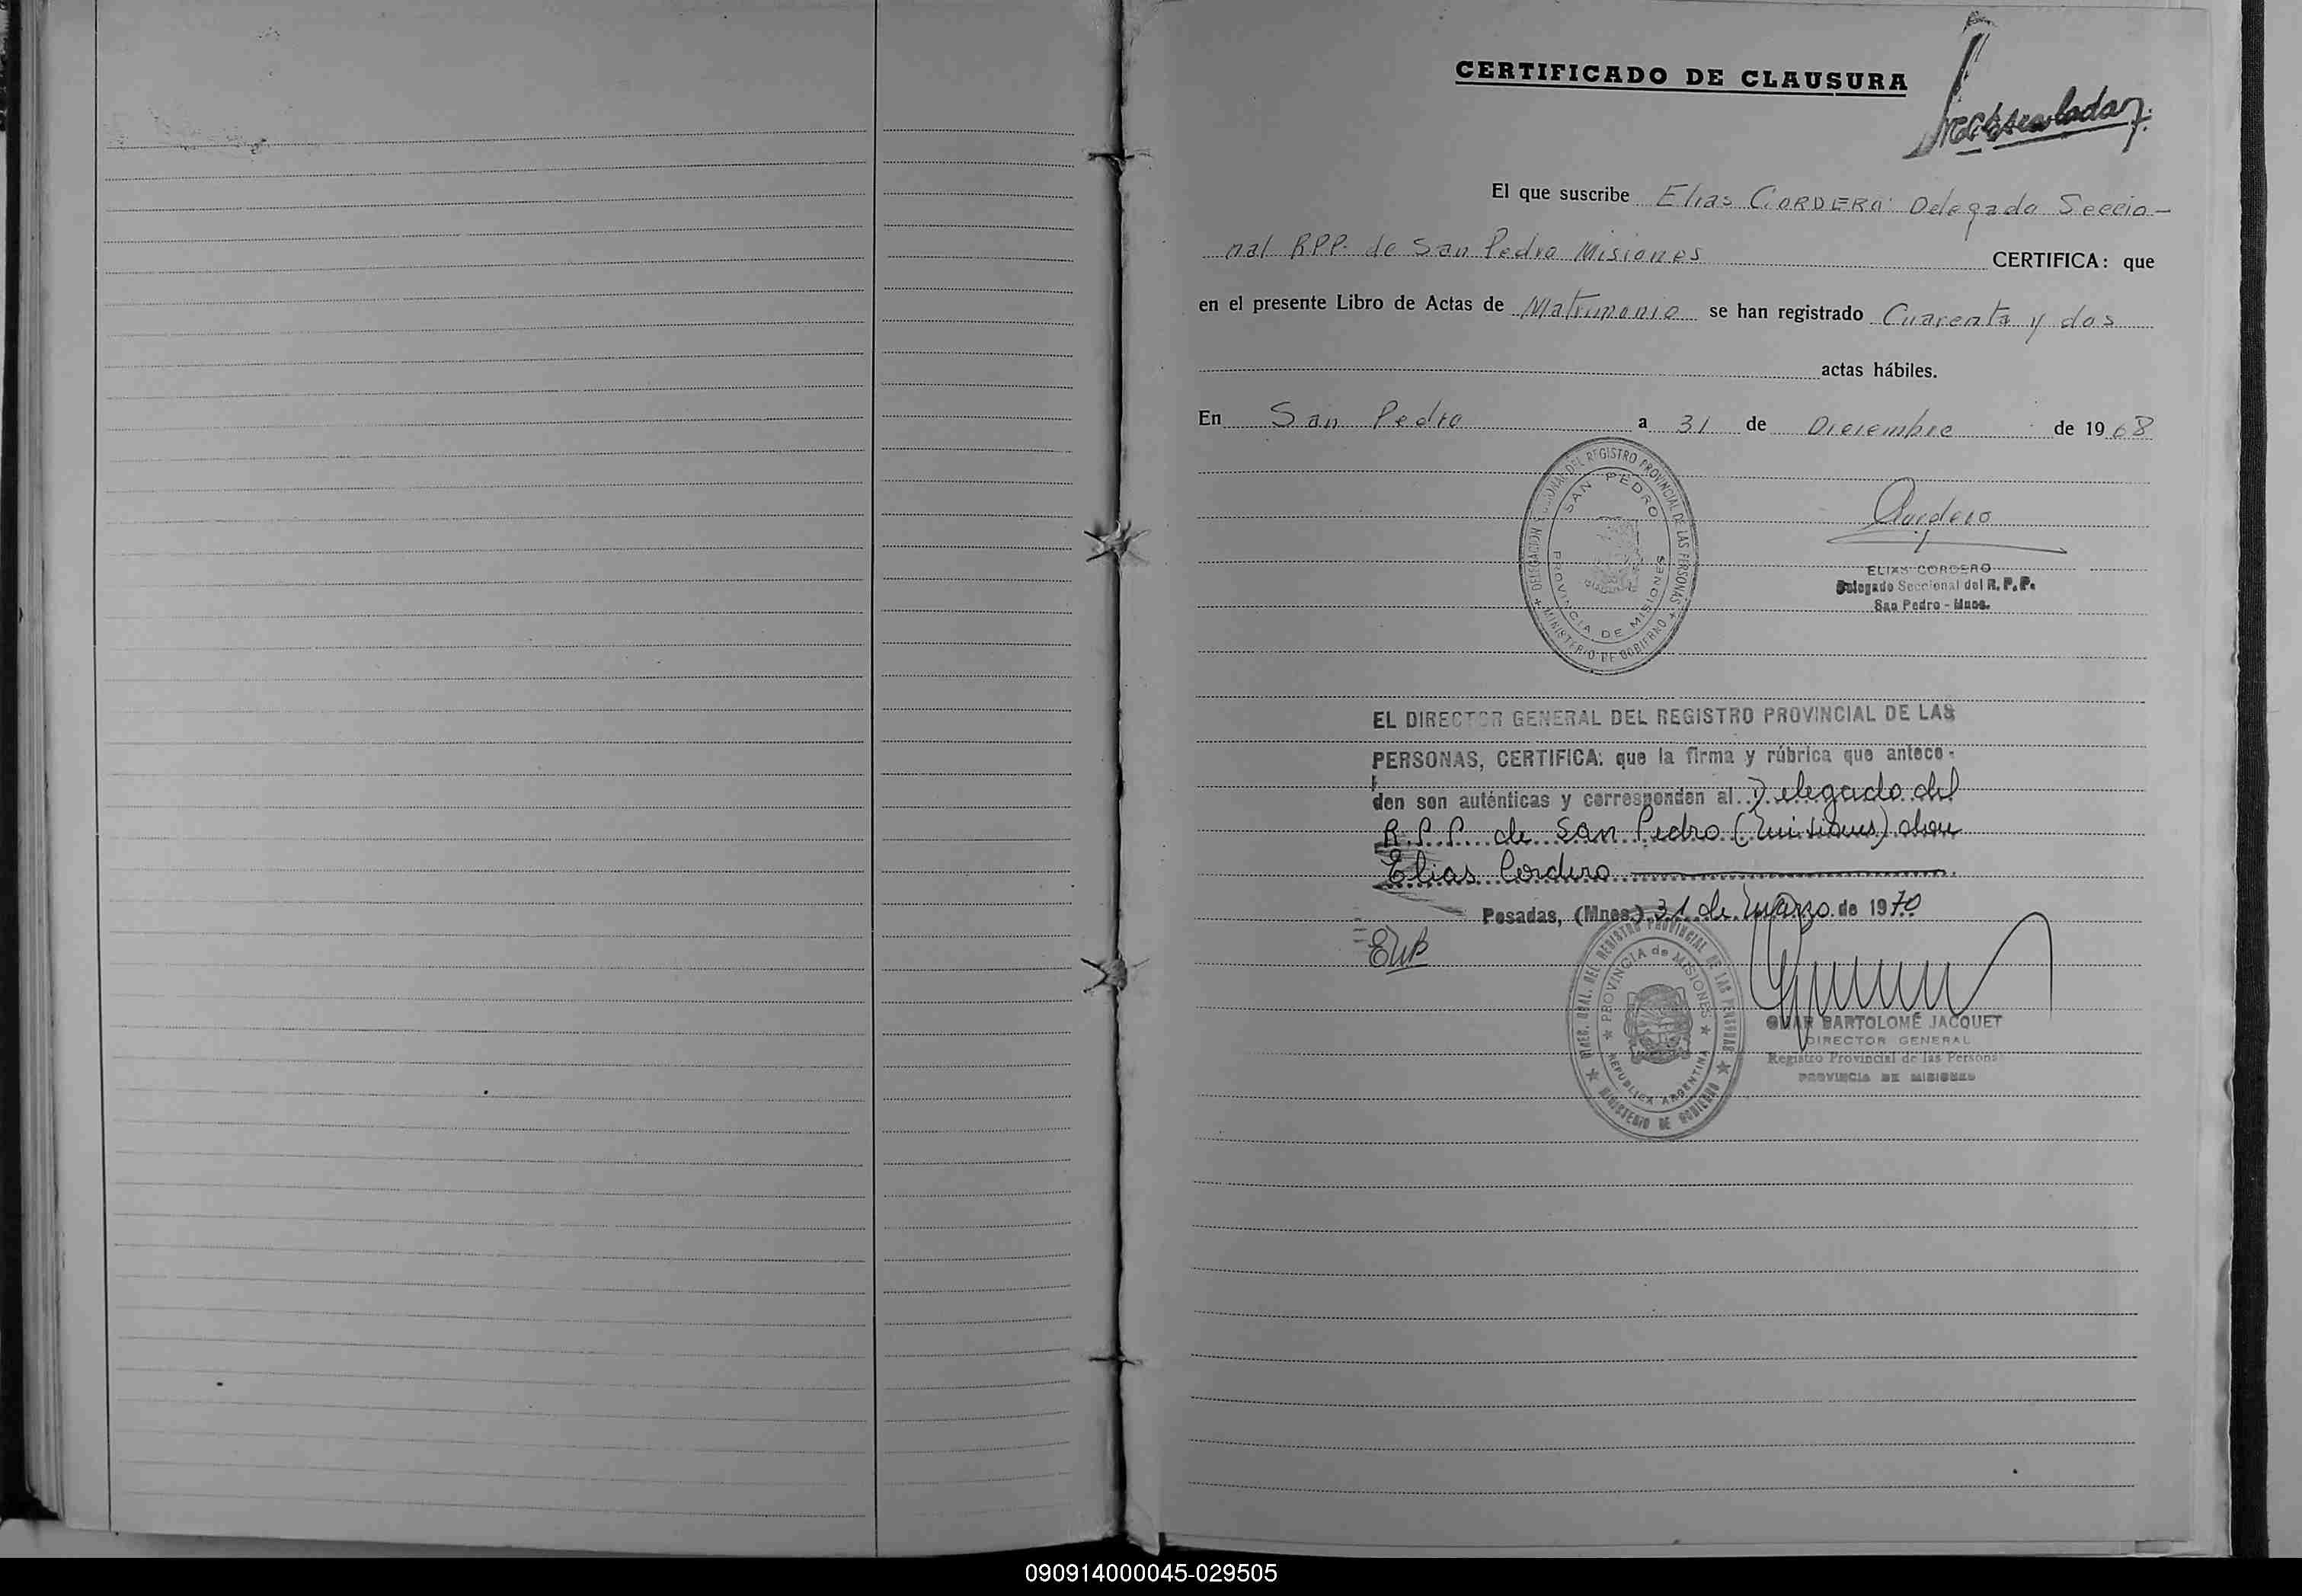 CERTIFICADO DE CLAUSURA
El que suscribe Elias CORDERO Delegado Seccio-
nal RPP. de San Pedro Misiones CERTIFICA: que
en el presente Libro de Actas de Matrimonio se han registrado Cuarenta y dos
actas hábiles.
En San Pedro a 31 de Diciembre de 1968
DELEGACION SECCIONAL DEL REGISTRO PROVINCIAL DE LAS PERSONAS
SAN PEDRO
PROVINCIA DE MISIONES
MINISTERIO DE GOBIERNO
Cordero
ELIAS CORDERO
Delegado Seccional del R. P. P.
San Pedro - Mnes.
EL DIRECTOR GENERAL DEL REGISTRO PROVINCIAL DE LAS
PERSONAS, CERTIFICA: que la firma y rúbrica que antece-
den son auténticas y corresponden al Delegado del
R. P. P. de San Pedro (Misiones) don
Elias Cordero
Posadas, (Mnes.) 31 de Marzo de 1970
DIREC. GRAL. DEL REGISTRO PROVINCIAL DE LAS PERSONAS
PROVINCIA de MISIONES
REPUBLICA ARGENTINA
MINISTERIO DE GOBIERNO
OMAR BARTOLOMÉ JACQUET
DIRECTOR GENERAL
Registro Provincial de las Personas
PROVINCIA DE MISIONES
090914000045-029505